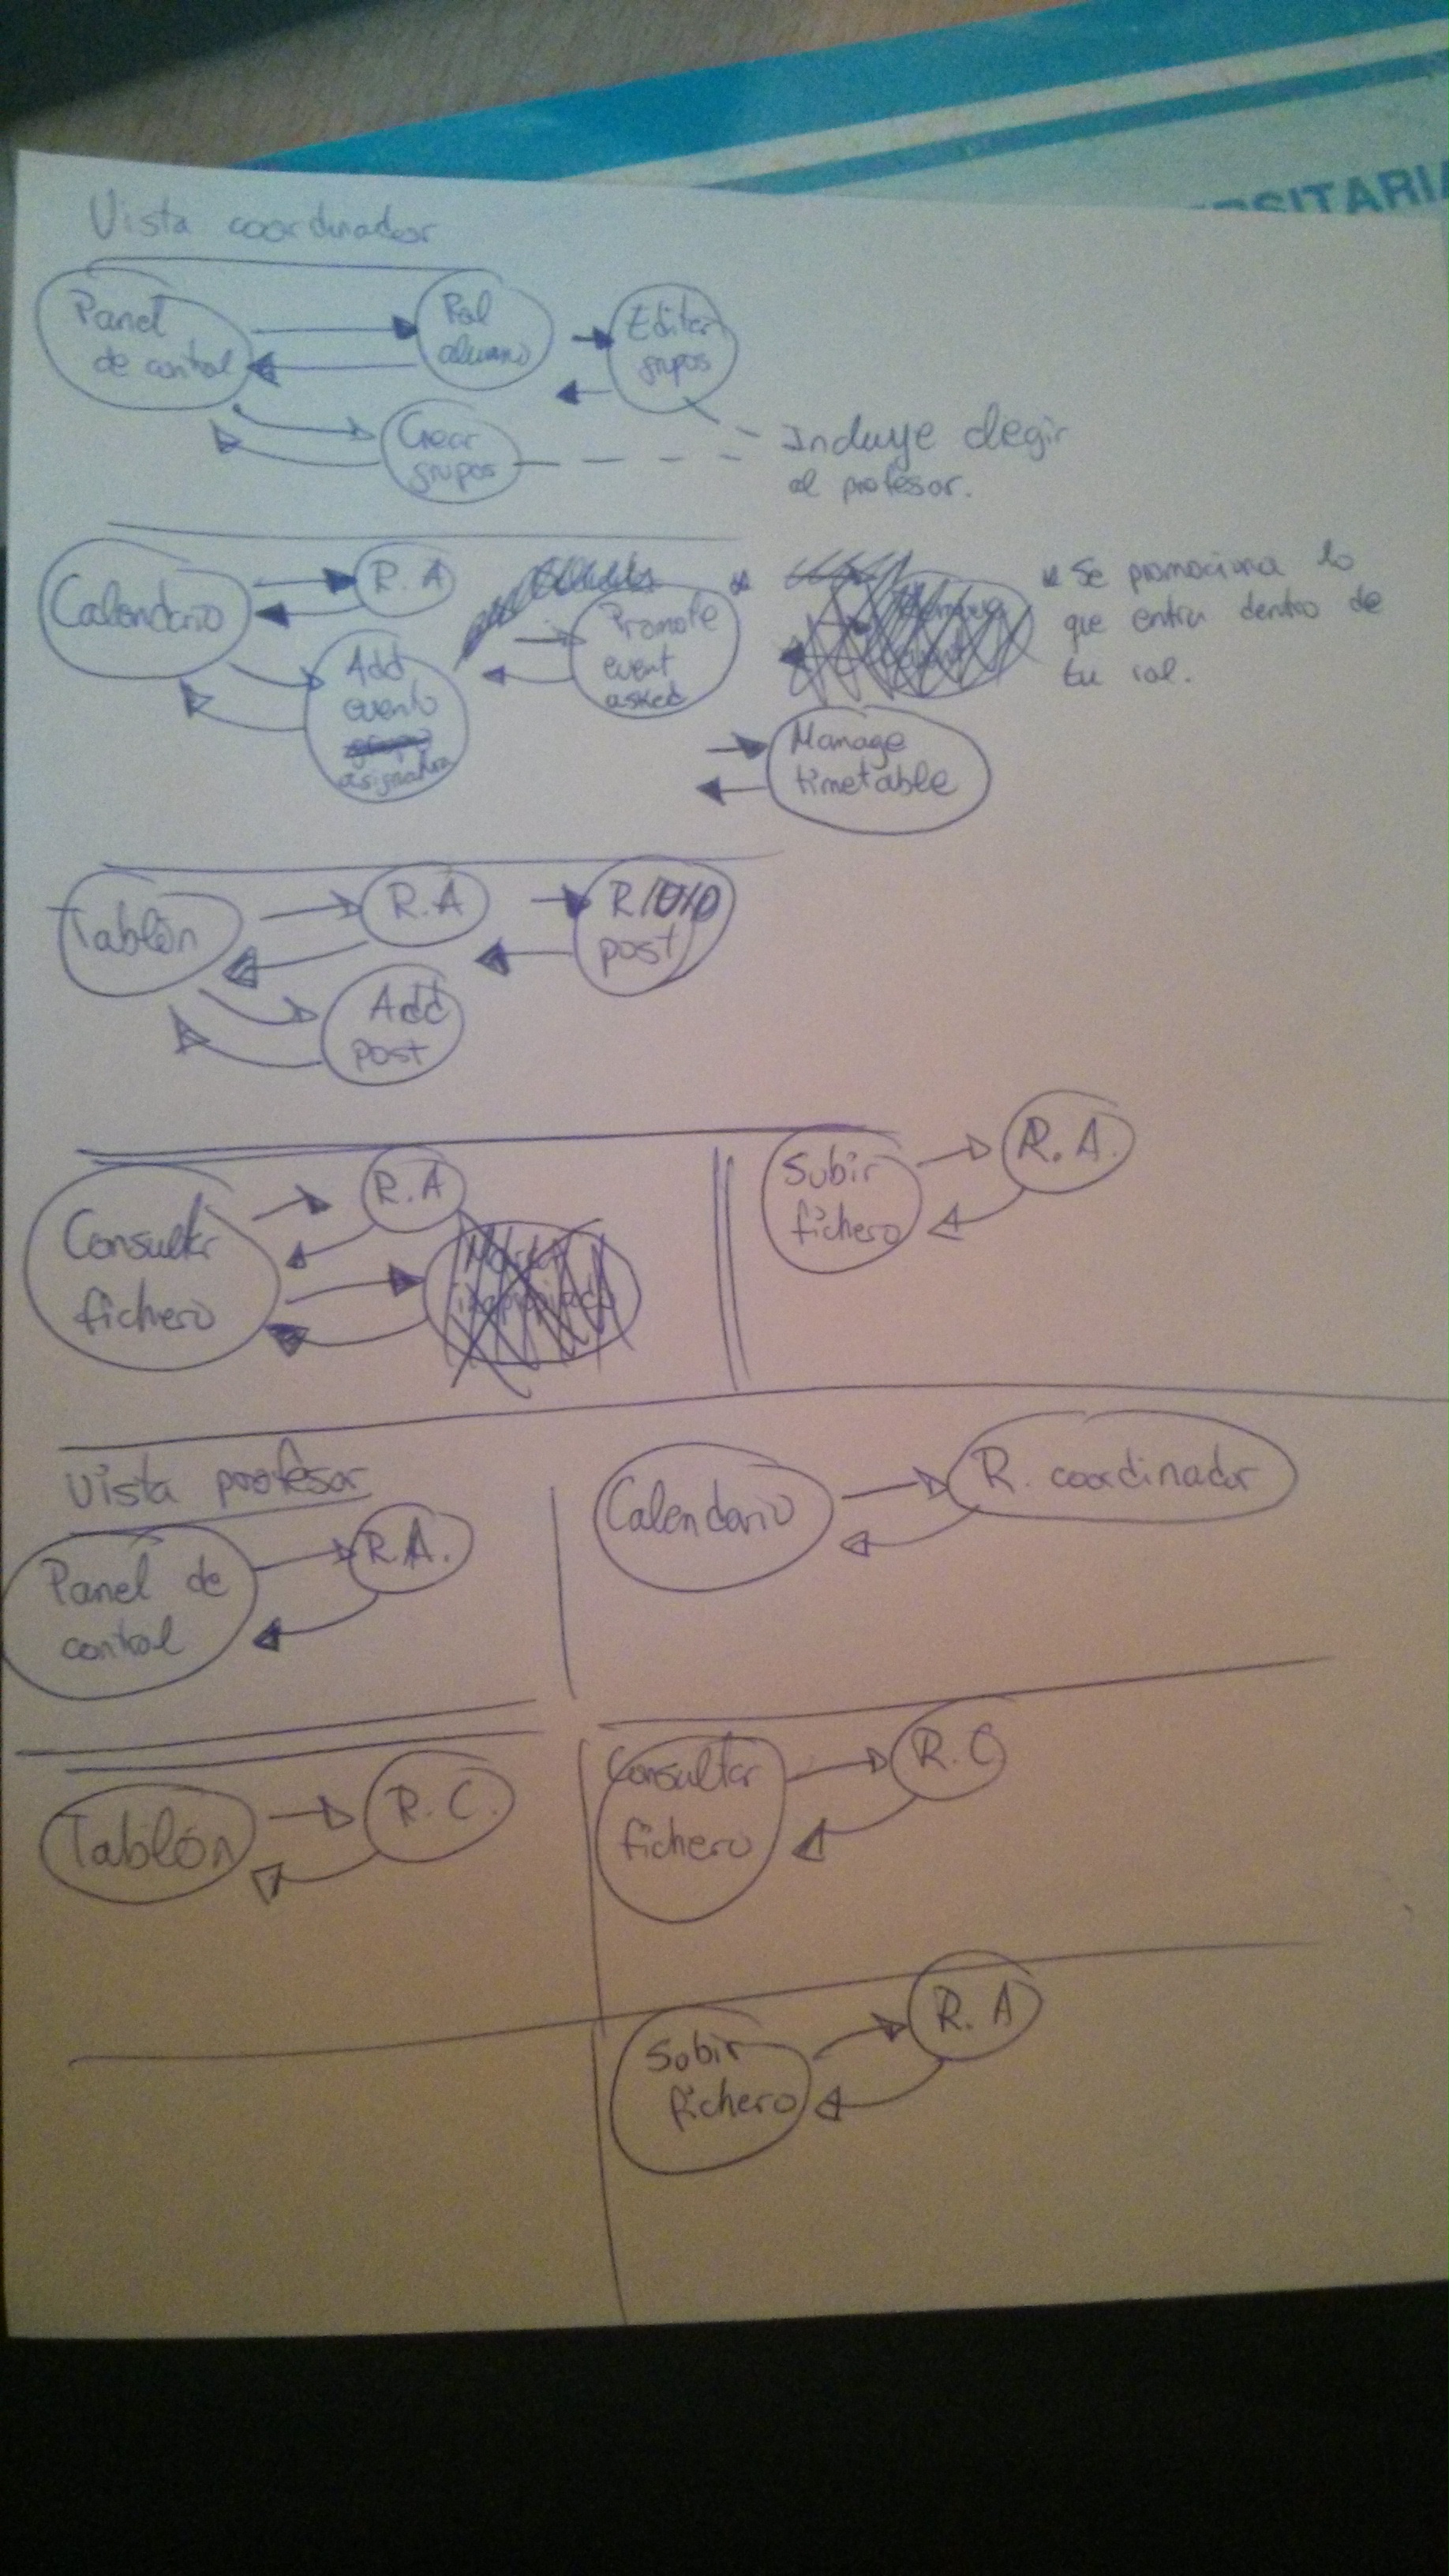 ERSITARIA
Vista coordinador
Panel
de control
Rol
alumno
Editar
grupos
Crear
grupos
Incluye elegir
al profesor.
Calendario
R.A
Add
evento
asignatura
Promote
event
asked
* Se promociona lo
que entra dentro de
tu rol.
Manage
timetable
Tablón
R.A
post
Add
post
Consultar
fichero
R.A
Subir
fichero
R.A.
Vista profesor
Panel de
control
R.A.
Calendario
R. coordinador
Tablón
R.C.
Consultar
fichero
R.C
Subir
fichero
R.A